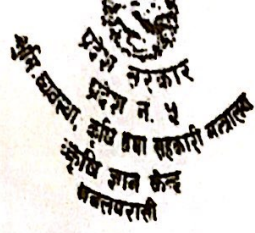 प्रदेश सरकार
प्रदेश न. ५
भूमि व्यवस्था, कृषि तथा सहकारी मन्त्रालय
कृषि ज्ञान केन्द्र
नवलपरासी